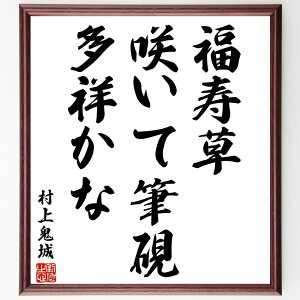 福寿草
咲いて筆硯
多祥かな
村上鬼城